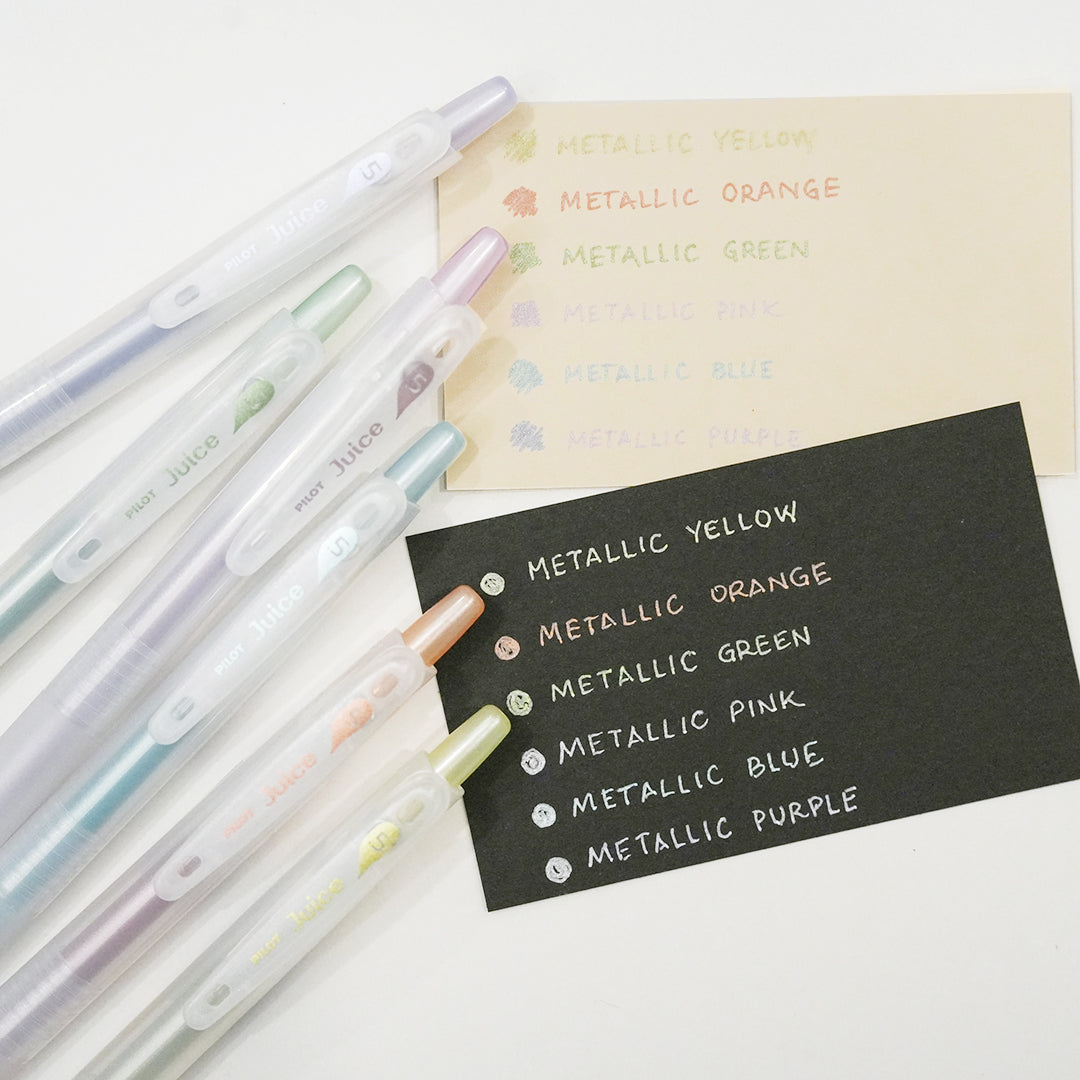 PILOT Juice 5
PILOT Juice
PILOT Juice 5
PILOT Juice 5
PILOT Juice
PILOT Juice 5
METALLIC YELLOW
METALLIC ORANGE
METALLIC GREEN
METALLIC PINK
METALLIC BLUE
METALLIC PURPLE
METALLIC YELLOW
METALLIC ORANGE
METALLIC GREEN
METALLIC PINK
METALLIC BLUE
METALLIC PURPLE